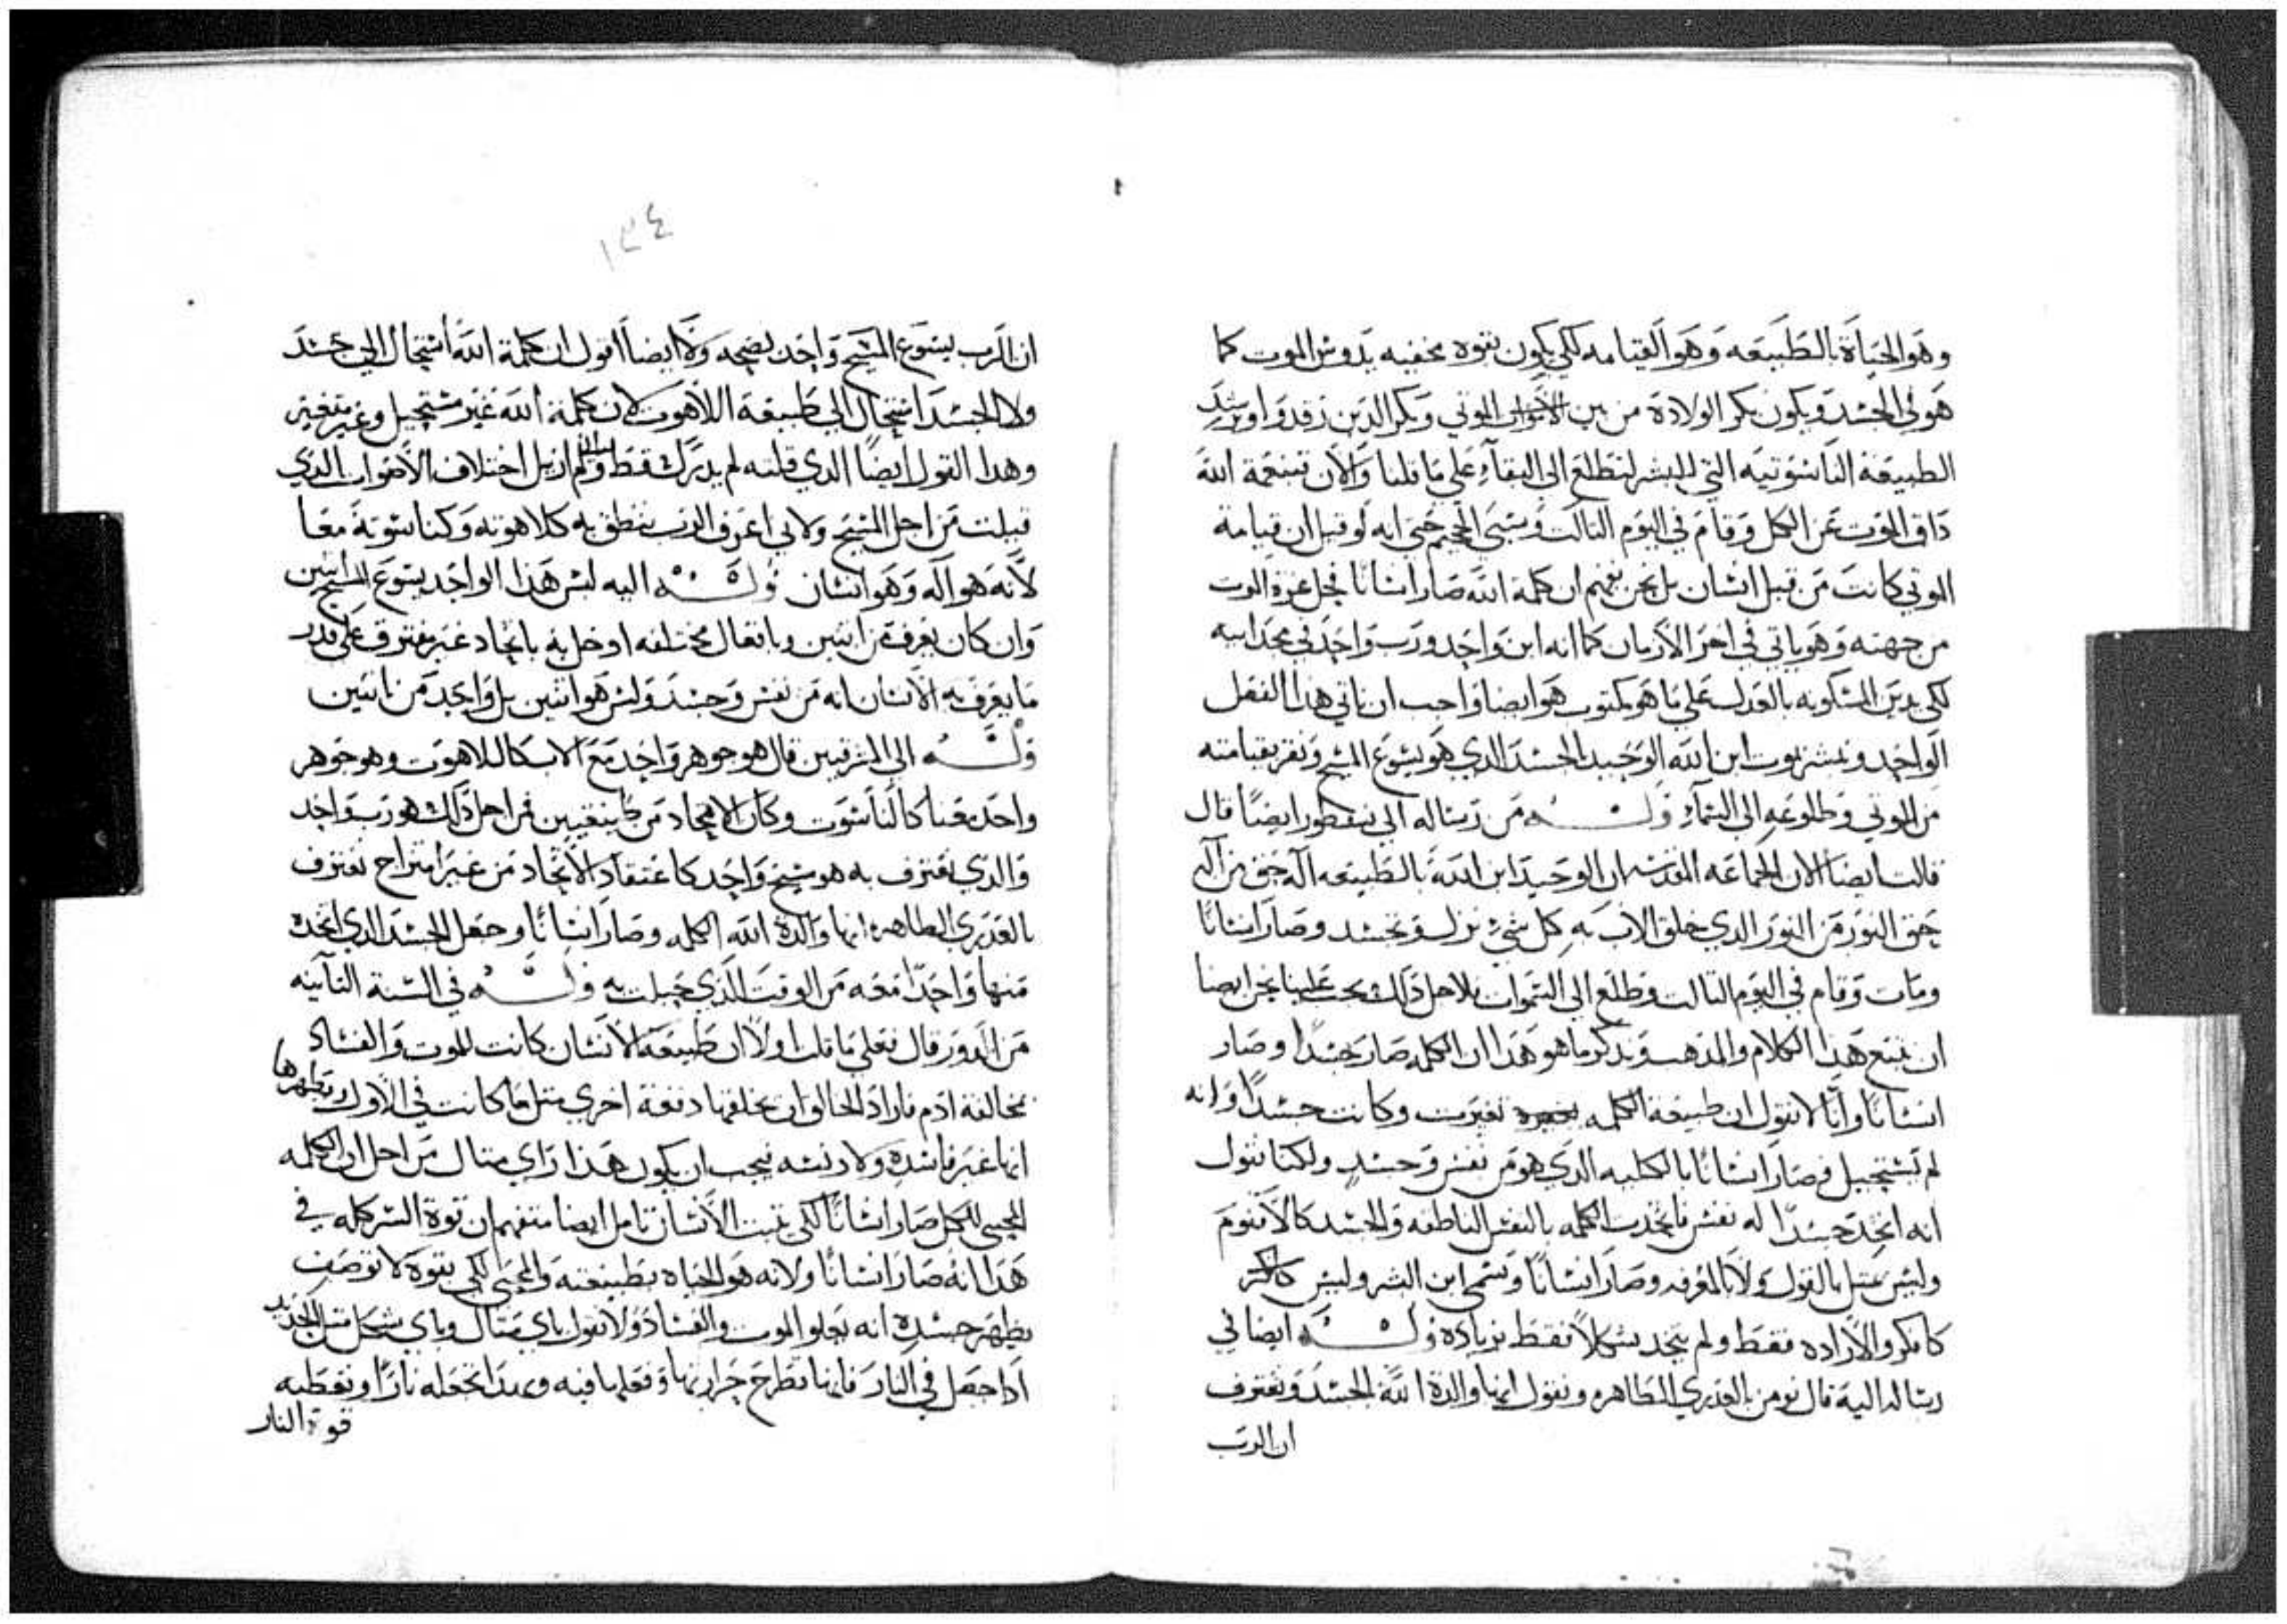 وهو الحياة بالطبيعه وهو القيامه لكي يكون بقوه مخفيه يدوس الموت كما
هوفي الجسد ويكون بكر الولادة من بين الاموات الموتي وبكر الدين رقدوا ويرشد
الطبيعة الناسوتيه التي للبشر لتطلع الي البقاء علي ما قلنا والان تبنعمة الله
داق الموت عن الكل وقام في اليوم التالت وسبي الجحيم حتي انه لو قيل ان قيامة
الموتي كانت من قبل انسان بل نحن نفهم ان كلمة الله صار انسانا فحل عزة الموت
من جهته وهو ياتي في اخر الازمان كما انه ابن واحد ورب واحد في مجد ابيه
لكي يدين المسكونه بالعدل علي ما هو مكتوب هو ايضا واجب ان ناتي هدا الفعل
الواحد ونبشر بموت ابن الله الوحيد الجسد الدي هو يسوع المسيح ونقر بقيامته
من الموتي وطلوعه الي السماء وله من رساله الي نسطور ايضا قال
قالت ايضا الان الجماعه المقدسه ان الوحيد ابن الله بالطبيعه اله حق من اله
حق النور من النور الدي خلق الاب به كل شي نزل وتجسد وصار انسانا
ومات وقام في اليوم التالت وطلع الي السموات فلاجل دلك يجب علينا نحن ايضا
ان نتبع هدا الكلام والمدهب وندكر ما هو هدا ان الكلمه صار جسدا وصار
انسانا وانا لا نقول ان طبيعة الكلمه تغيرت وكانت جسدا وانه
لم تستحيل فصار انسانا بالكليه الدي هو من نفس وجسد ولكنا نقول
انه اتخد جسدا له نفس فاتحدت الكلمه بالنفس الناطقه والجسد كالاقنوم
وليس عتل بالقول ولا بالمعرفه وصار انسانا وتسمي ابن البشر وليس
كافكر والاراده فقط ولم يتخد شكلا فقط بزياده وله ايضا في
رساله اليه قال نومن بالعدري الطاهره ونقول انها والدة الله الجسد ونعترف
ان الرب
١٣٤
ان الرب يسوع المسيح واحد بصحه ولا ايضا اقول ان كلمة الله استحال الي جسد
ولا الجسد استحال الي طبيعة اللاهوت لان كلمة الله غير مستحيل وغير متغير
وهدا القول ايضا الدي قلته لم يدرك قط ولم ازيل اختلاف الاصوات الدي
قيلت من اجل المسيح ولاني اعرف الرب ينطق به كلاهوته وكناسوتة معا
لانه هو اله وهو انسان وله اليه ليس هدا الواحد يسوع المسيح اتنين
وان كان يعرف من اتنين وبافعال مختلفه اوخل به باتحاد غير مفترق علي قدر
ما يعرف به الانسان انه من نفس وجسد وليس هو اتنين بل واحد من اتنين
وله الي المشرقيين قال هو جوهر واحد مع الاب كاللاهوت وهو جوهر
واحد معنا كالناسوت وكان الاتحاد من طبيعتين فمن اجل دلك هو رب واحد
والدي نعترف به هو مسيح واحد كاعتقاد الاتحاد من غير امتزاج نعترف
بالعدري الطاهره انها والدة الله الكلمه وصار انسانا وجعل الجسد الدي اتخده
منها واحدا معه من الوقت الدي حبلت به وله في السنة التانيه
من الدور قال فعلي ما قلت اولا ان طبيعة الانسان كانت للموت والفساد
بمخالفة ادم فاراد الخالق ان يخلقها دفعة اخري متل ما كانت في الاول ويطهرها
انها غير فاسده ولا دنسه فيجب ان يكون هدا اراي متال من اجل ان الكلمه
المحيي للكل صار انسانا لكي تتبت الانسان تامل ايضا متفهم ان قوة السر كله في
هدا انه صار انسانا ولانه هو الحياه بطبيعته والمحيي لكي بقوة لا توصف
يظهر جسده انه يعلو الموت والفساد ولا نقول باي متال وباي شكل متل الحديد
ادا حصل في النار فانها تطرح حرارتها وفعلها فيه وتجعله نارا وتعطيه
قوة النار